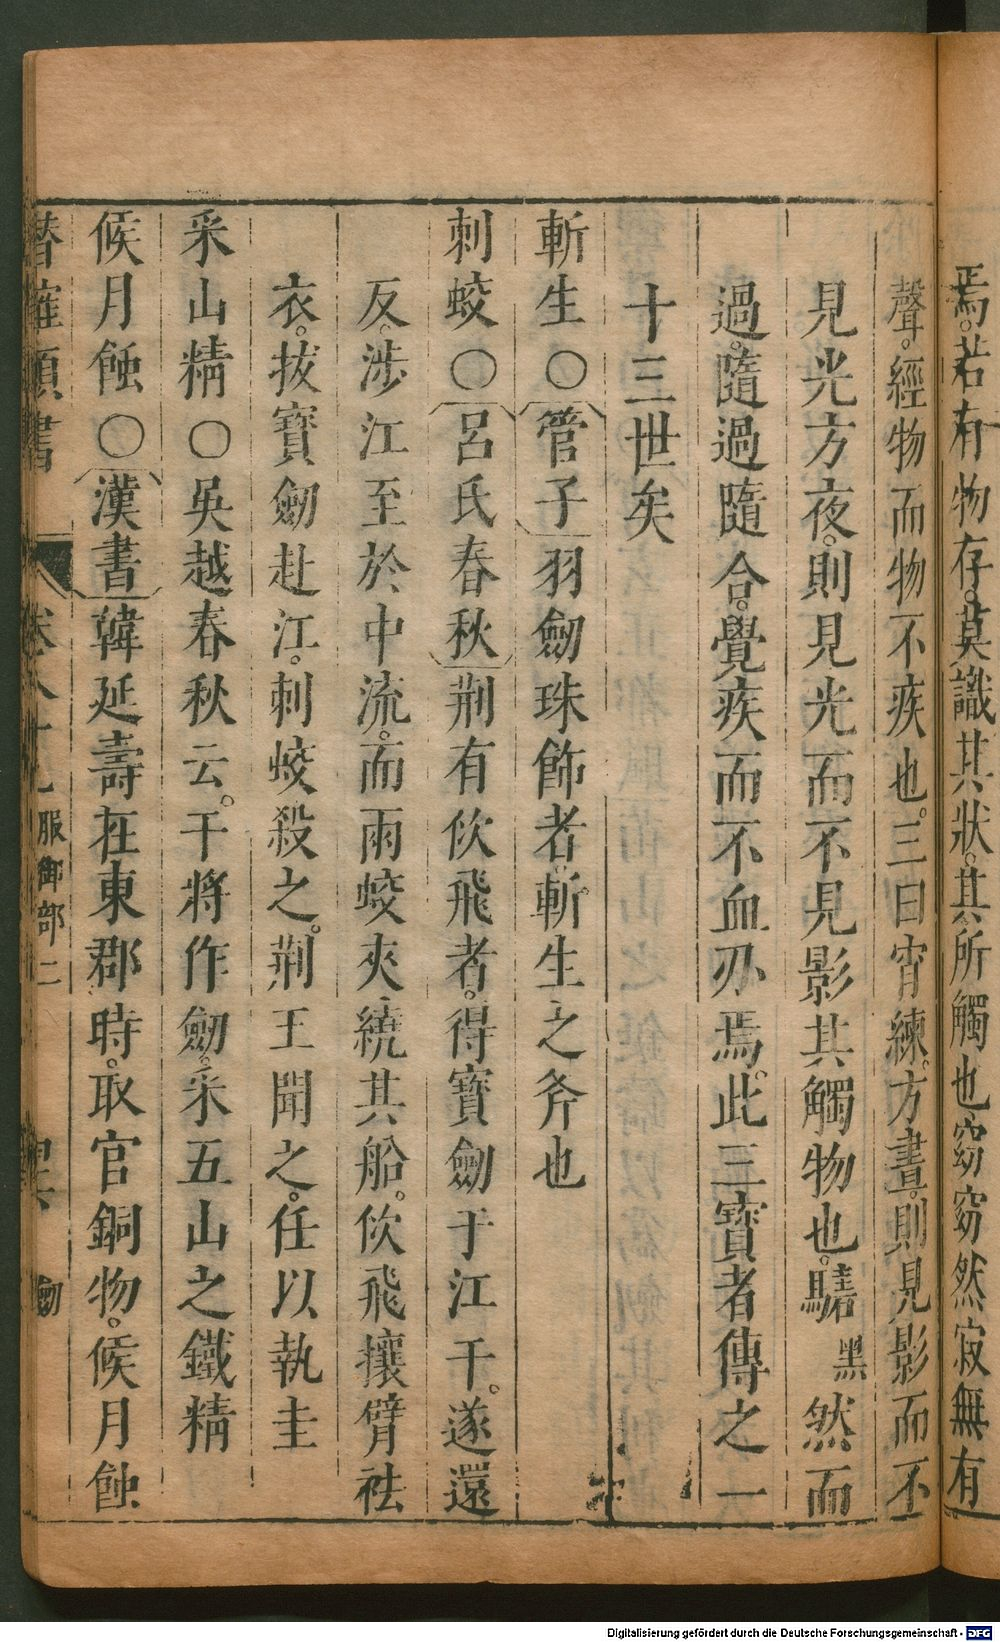 焉。若有物存。莫識其狀。其所觸也窈窈然寂無有
聲。經物而物不疾也。三曰宵練。方晝。則見影而不
見光方夜。則見光而不見影其觸物也。騞黑然而
過。隨過隨合。覺疾而不血刃焉。此三寶者傳之一
十三世矣
斬生〇管子羽劒珠飾者。斬生之斧也
刺蛟〇呂氏春秋荆有佽飛者。得寶劒于江干。遂還
反。涉江至於中流。而兩蛟夾繞其船。佽飛攘臂祛
衣。拔寶劒赴江。刺蛟殺之。荆王聞之。任以執圭
釆山精〇吳越春秋云。干將作劒。釆五山之鐵精
候月蝕〇漢書韓延壽在東郡時。取官銅物。候月蝕
潛確類書 卷八十九 服御部二 劒
Digitalisierung gefördert durch die Deutsche Forschungsgemeinschaft - DFG